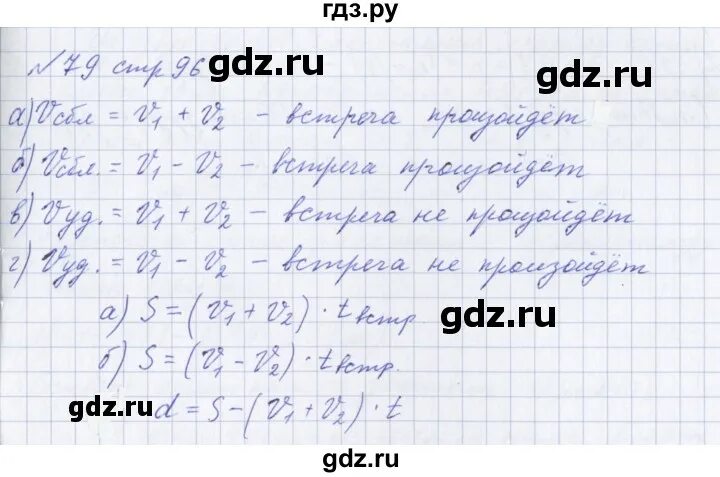 гдз.ру
№79 стр 96
gdz.ru
а) Vсбл = V₁ + V₂ – встреча произойдёт
gdz.ru
б) Vсбл. = V₁ – V₂ – встреча произойдёт
в) Vуд. = V₁ + V₂ – встреча не произойдёт
г) Vуд. = V₁ – V₂ – встреча не произойдёт
а) S = (V₁ + V₂) · t встр.
gdz.ru
б) S = (V₁ – V₂) · t встр.
gdz.ru
d = S – (V₁ + V₂) · t
gdz.ru
gdz.ru